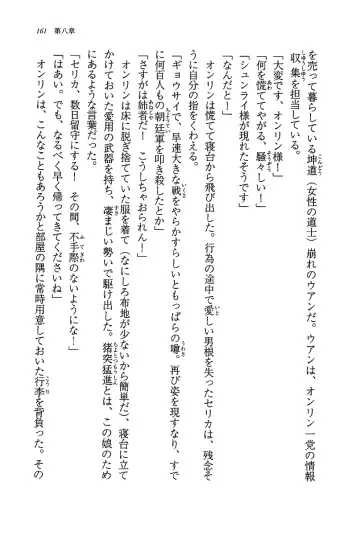 161　第八章
を売って暮らしている坤道（女性の道士）崩れのウアンだ。ウアンは、オンリン一党の情報
収集を担当している。
「大変です、オンリン様！」
「何を慌ててやがる、騒々しい！」
「シュンライ様が現れたそうです」
「なんだと！」
オンリンは慌てて寝台から飛び出した。行為の途中で愛しい男根を失ったセリカは、残念そ
うに自分の指をくわえる。
「ギョウサイで、早速大きな戦をやらかすらしいともっぱらの噂。再び姿を現すなり、すで
に何百人もの朝廷軍を叩き殺したとか」
「さすがは姉者だ！　こうしちゃおられん！」
オンリンは床に脱ぎ捨てていた服を着て（なにしろ布地が少ないから簡単だ）、寝台に立て
かけておいた愛用の武器を持ち、凄まじい勢いで駆け出した。猪突猛進とは、この娘のため
にあるような言葉だった。
「セリカ、数日留守にする！　その間、不手際のないようにな！」
「はあい。でも、なるべく早く帰ってきてくださいね」
オンリンは、こんなこともあろうかと部屋の隅に常時用意しておいた行李を背負った。その